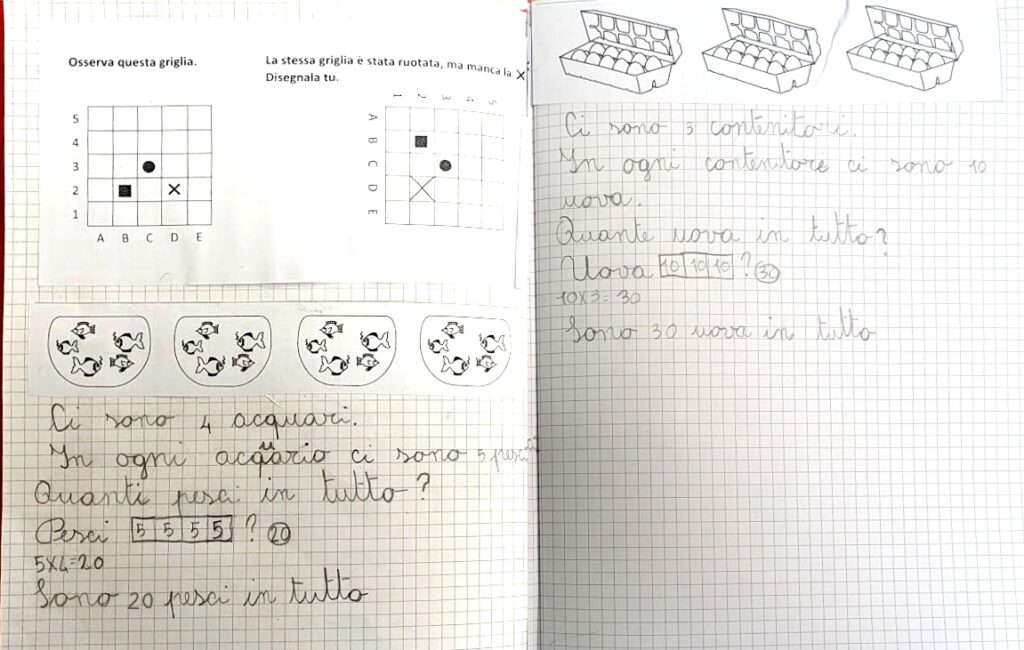 Osserva questa griglia.
5
4
3
2
1
A B C D E
La stessa griglia è stata ruotata, ma manca la X
Disegnala tu.
1 2 3 4 5
A
B
C
D
E
Ci sono 4 acquari.
In ogni acquario ci sono 5 pesci
Quanti pesci in tutto?
Pesci 5 5 5 5 ? 20
5x4=20
Sono 20 pesci in tutto
Ci sono 3 contenitori.
In ogni contenitore ci sono 10
uova.
Quante uova in tutto?
Uova 10 10 10 ? 30
10x3=30
Sono 30 uova in tutto